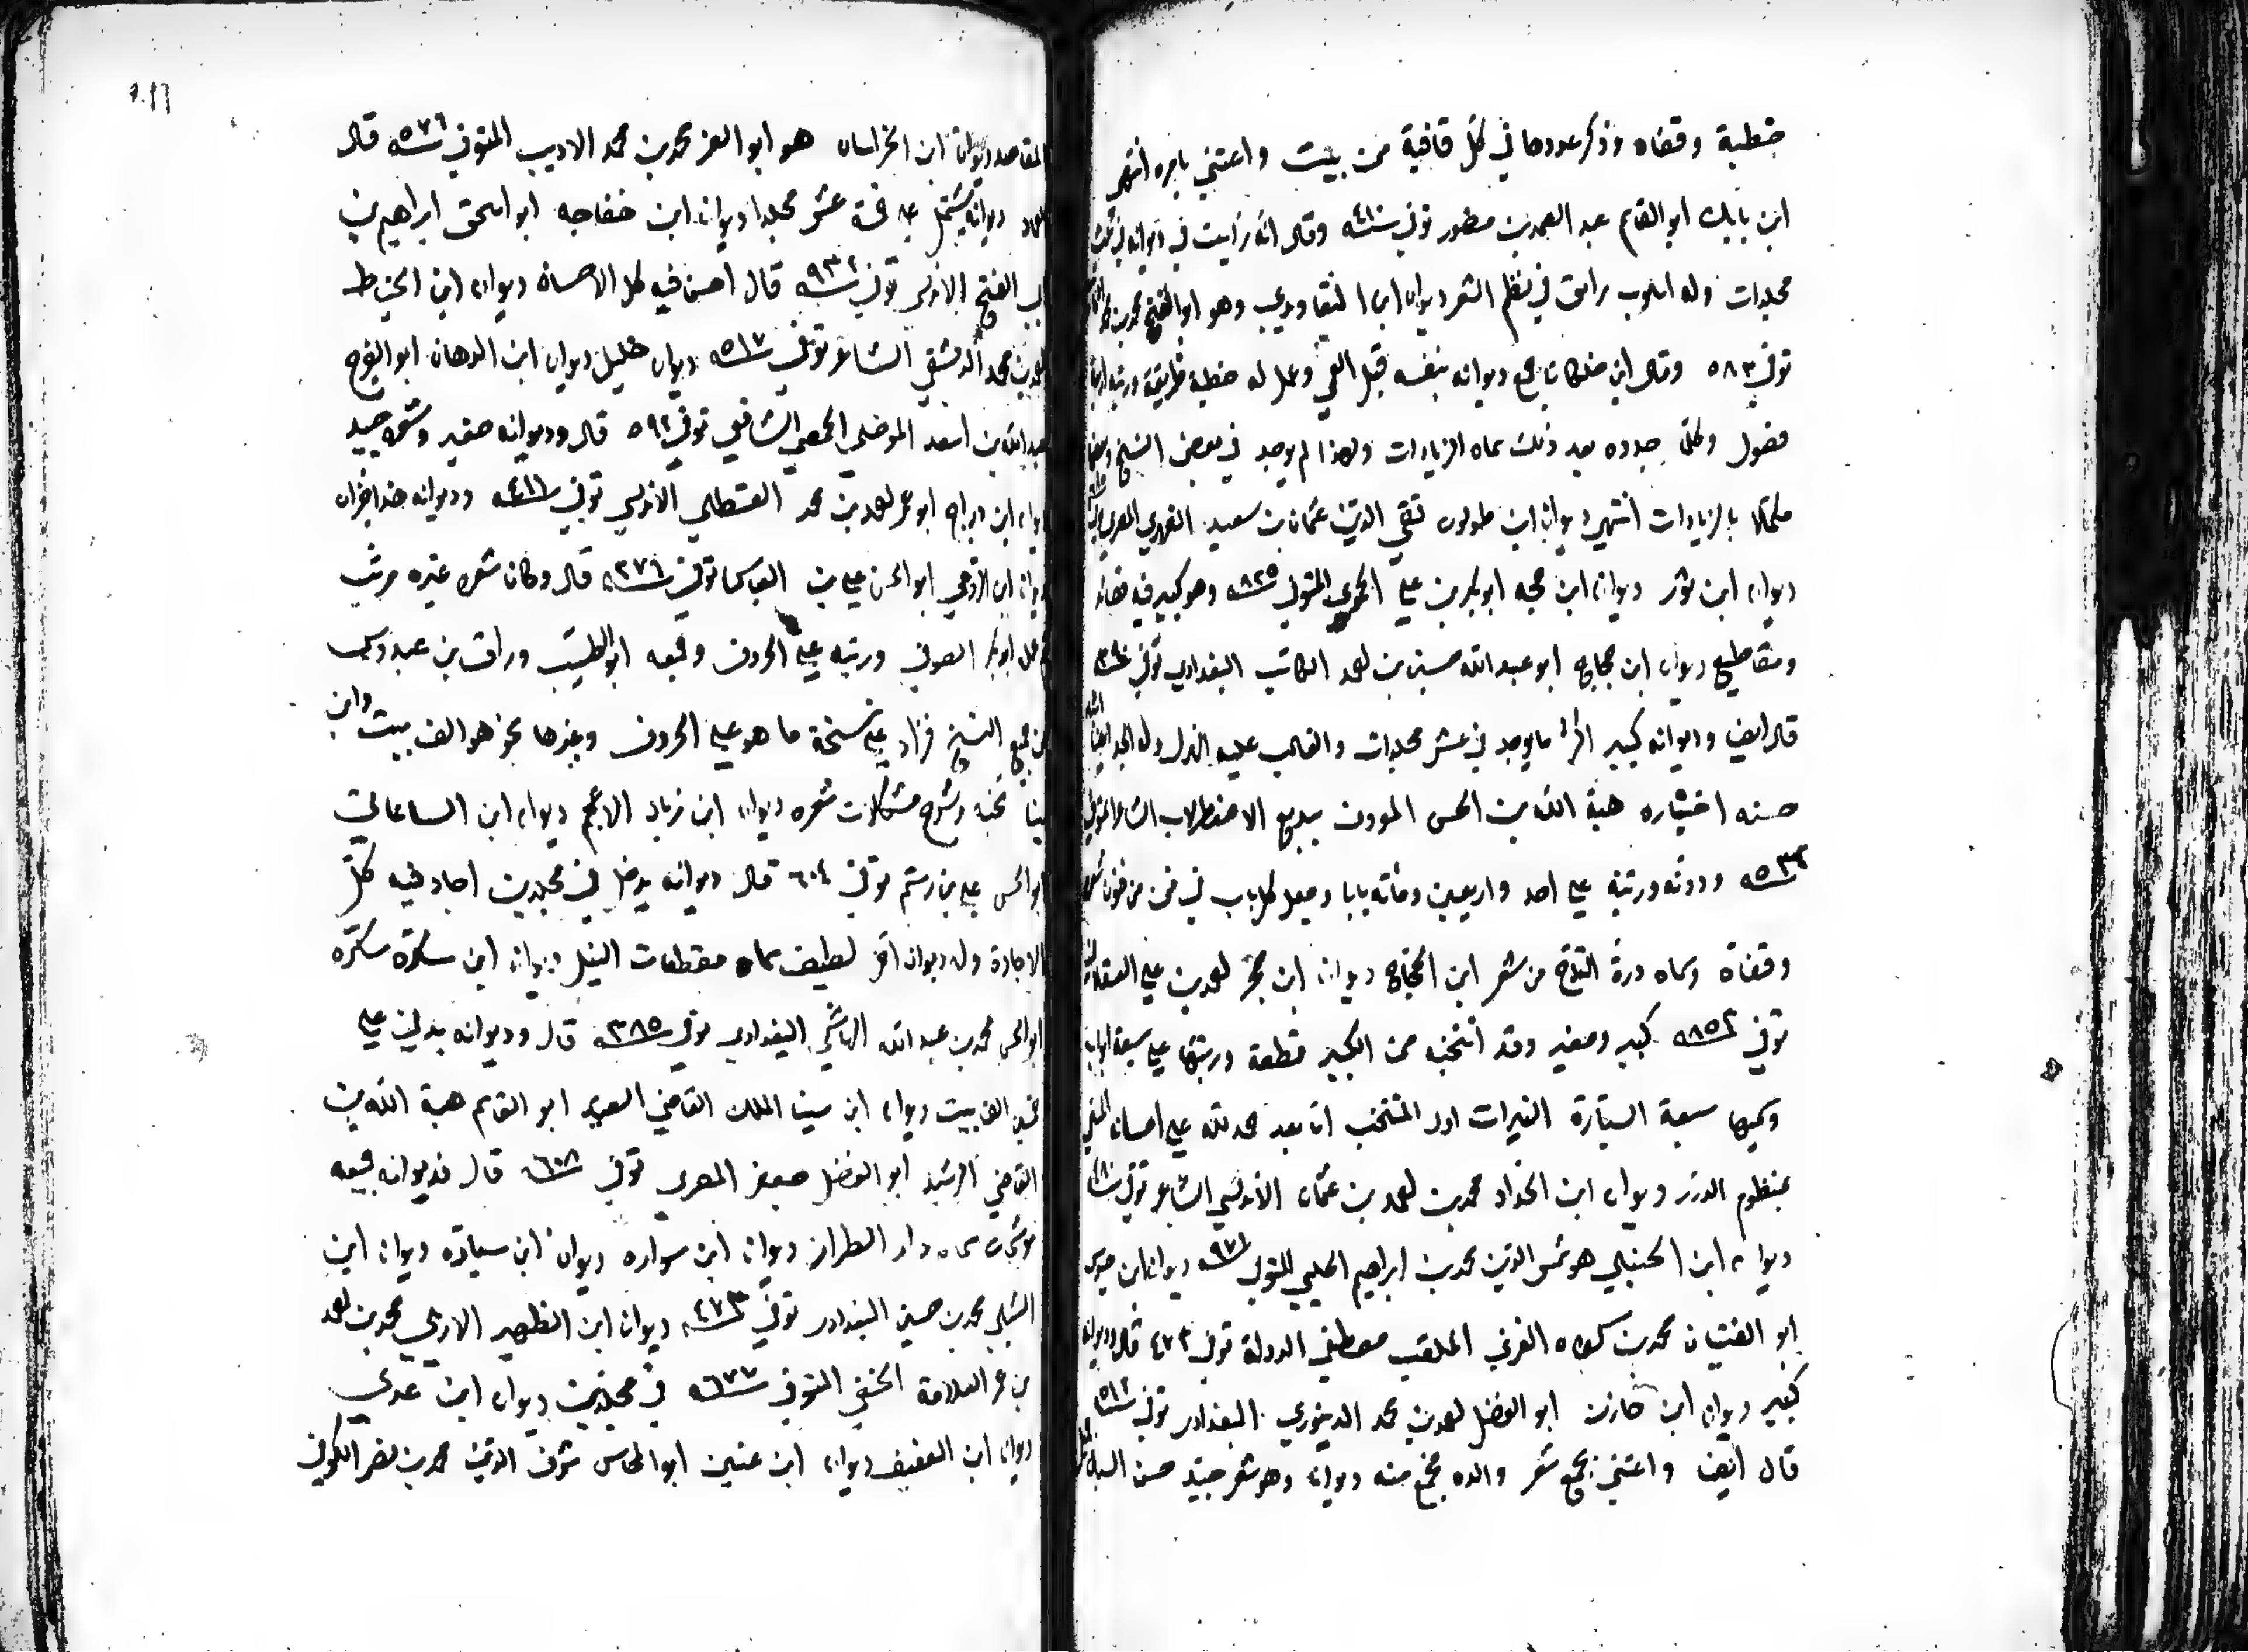 خطبة وقفاه وذكر عددها في كل قافية من بيت واعتنى بامره انتهى
ابن بابك ابو القاسم عبد الصمد بن منصور توفي سنة ٤١٠ وقال انه رايت في ديوانه في ثلث
مجلدات وله اسلوب رائق في نظم الشعر ديوان ابن التعاويذي وهو ابو الفتح محمد بن
توفي ٥٨٣ وقال ابن خلكان جمع ديوانه بنفسه قبل العمى وعمل له خطبة ظريفة ورتبه اربعة
فصول وكل جدده بعد ذلك سماه الزيادات ولهذا لم يوجد في بعض النسخ وبعضها
مكملا بالزيادات انتهى ديوان ابن طولون تقي الدين عثمان بن سعيد الفهري المصري
ديوان ابن ثور ديوان ابن حجه ابو بكر بن علي الحموي المتوفى سنة ٨٢٥ وهو كبير فيه قصائد
ومقاطيع ديوان ابن حجاج ابو عبد الله حسين بن احمد الكاتب البغدادي توفي
قال ايضا وديوانه كبير اكثر ما يوجد في عشر مجلدات والغالب عليه الهزل وله الجد ايضا
حسنه اختياره هبة الله بن الحسن المعروف ببديع الاصطرلاب الشاعر المتوفى
سنة ٥٣٤ ودونه ورتبه على احد واربعين ومائة بابا وجعل كل باب في فن من فنون شعره
وقفاه وسماه درة التاج من شعر ابن الحجاج ديوان ابن حجر احمد بن علي العسقلاني
توفي سنة ٨٥٢ كبير وصغير وقد انتخب من الكبير قطعة ورتبها على سبعة ابواب
وسميها سبعة السيارة النيرات اول المنتخب اما بعد حمد الله على احسانه
بمنظوم الدرر ديوان ابن الحداد محمد بن احمد بن عثمان الاندلسي الشاعر توفي
ديوان ابن الحنبلي هو شمس الدين محمد بن ابراهيم الحلبي المتوفى سنة ٩٧١ ديوان ابن حيوس
ابو الفتيان محمد بن سلطان الغزي الملقب مصطفى الدولة توفي ٤٧٣ قال وديوانه
كبير ديوان ابن خازن ابو الفضل احمد بن محمد الدينوري البغدادي توفي سنة ٥١٢
قال ايضا واعتنى بجمع شعر والده فجمع منه ديوانا وهو شعر جيد حسن السبك
المقاصد ديوان ابن الخراسان هو ابو العز محمد بن محمد الاديب المتوفى سنة ٥٧٦ قال
العماد ديوانه يشتمل على خمسة عشر مجلدا ديوان ابن خفاجه ابو اسحق ابراهيم بن
ابي الفتح الاندلسي توفي سنة ٩٣٢ قال احسن فيه كل الاحسان ديوان ابن الخياط
احمد بن محمد الدمشقي الشاعر توفي سنة ٥١٧ ديوان خليل ديوان ابن الدهان ابو الفرج
عبد الله بن اسعد الموصلي الحمصي الشافعي توفي ٥٩٢ قال وديوانه صغير وشعره جيد
ديوان ابن دراج ابو عمر احمد بن محمد القسطلي الاندلسي توفي سنة ٤٢١ وديوانه جزان
ديوان ابن الرومي ابو الحسن علي بن العباس توفي سنة ٢٧٦ قال وكان شعره غير مرتب
ابو بكر الصولي ورتبه على الحروف وجمعه ابو الطيب وراق بن عبدوس
من جميع النسخ فزاد على نسخة ما هو على الحروف وغيرها نحو هو الف بيت وابن
سينا نخبه وشرح مشكلات شعره ديوان ابن زياد الاعجم ديوان ابن الساعاتي
ابو الحسن علي بن رستم توفي ٦٠٤ قال ديوانه يدخل في مجلدين اجاد فيه كل
الاجادة وله ديوان اخر لطيف سماه مقطعات النيل ديوان ابن سكرة سكره
ابو الحسن محمد بن عبد الله الهاشمي البغدادي توفي سنة ٣٨٥ قال وديوانه يدل على
خمسين الف بيت ديوان ابن سينا الملك القاضي السعيد ابو القاسم هبة الله بن
القاضي الرشيد ابو الفضل جعفر المصري توفي سنة ٦٠٨ قال ديوانه جميعه
موشحات سماه دار الطراز ديوان ابن سواره ديوان ابن سيادة ديوان ابن
الشبلي محمد بن حسين البغدادي توفي سنة ٤٧٣ ديوان ابن الظهير الاربلي محمد بن احمد
بن عمر العلامة الحنفي المتوفى سنة ٦٧٧ في مجلدين ديوان ابن عدي
ديوان ابن العفيف ديوان ابن عنين ابو المحاسن شرف الدين محمد بن نصر الكوفي